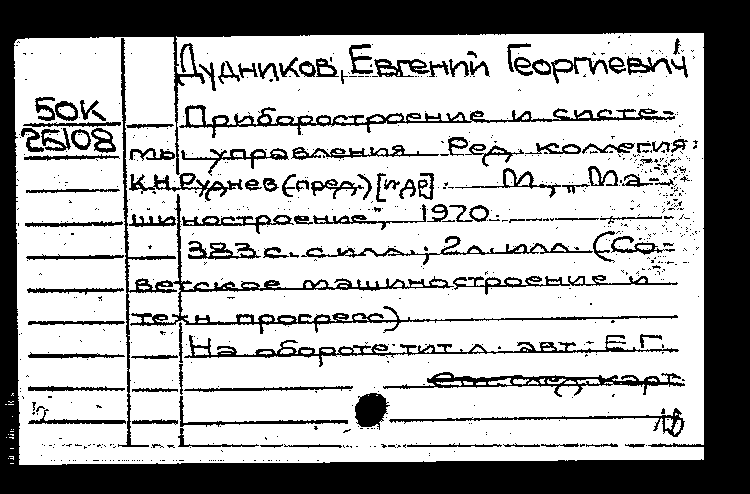 Дудников, Евгений Георгиевич
50К
25108
Приборостроение и систе-
мы управления. Ред. коллегия:
К.Н. Руднев (пред.) [и др]. М., „Ма-
шиностроение", 1970.
383 с. с илл.; 2 л. илл. (Со-
ветское машиностроение и
техн прогресс).
На обороте тит. л. авт.: Е.Г.
См. след. карт.